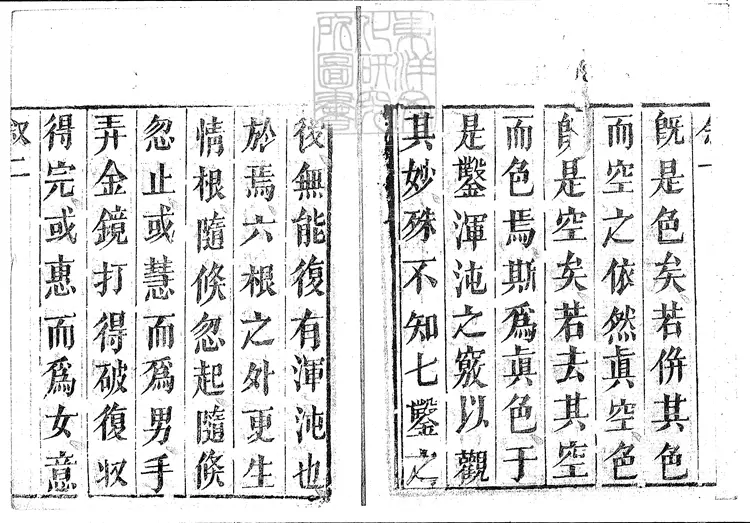 既是色矣若併其色
而空之依然眞空色
即是空矣若去其空
而色焉斯爲眞色于
是鑿渾沌之竅以觀
其妙殊不知七鑿之
後無能復有渾沌也
於焉六根之外更生
情根隨倏忽起隨倏
忽止或慧而爲男手
弄金鏡打得破復収
得完或惠而爲女意
叙二
東洋文化研究所圖書